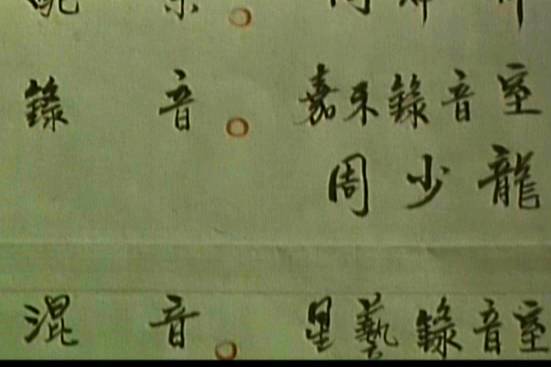 錄音。嘉禾錄音室
周少龍
混音。星藝錄音室